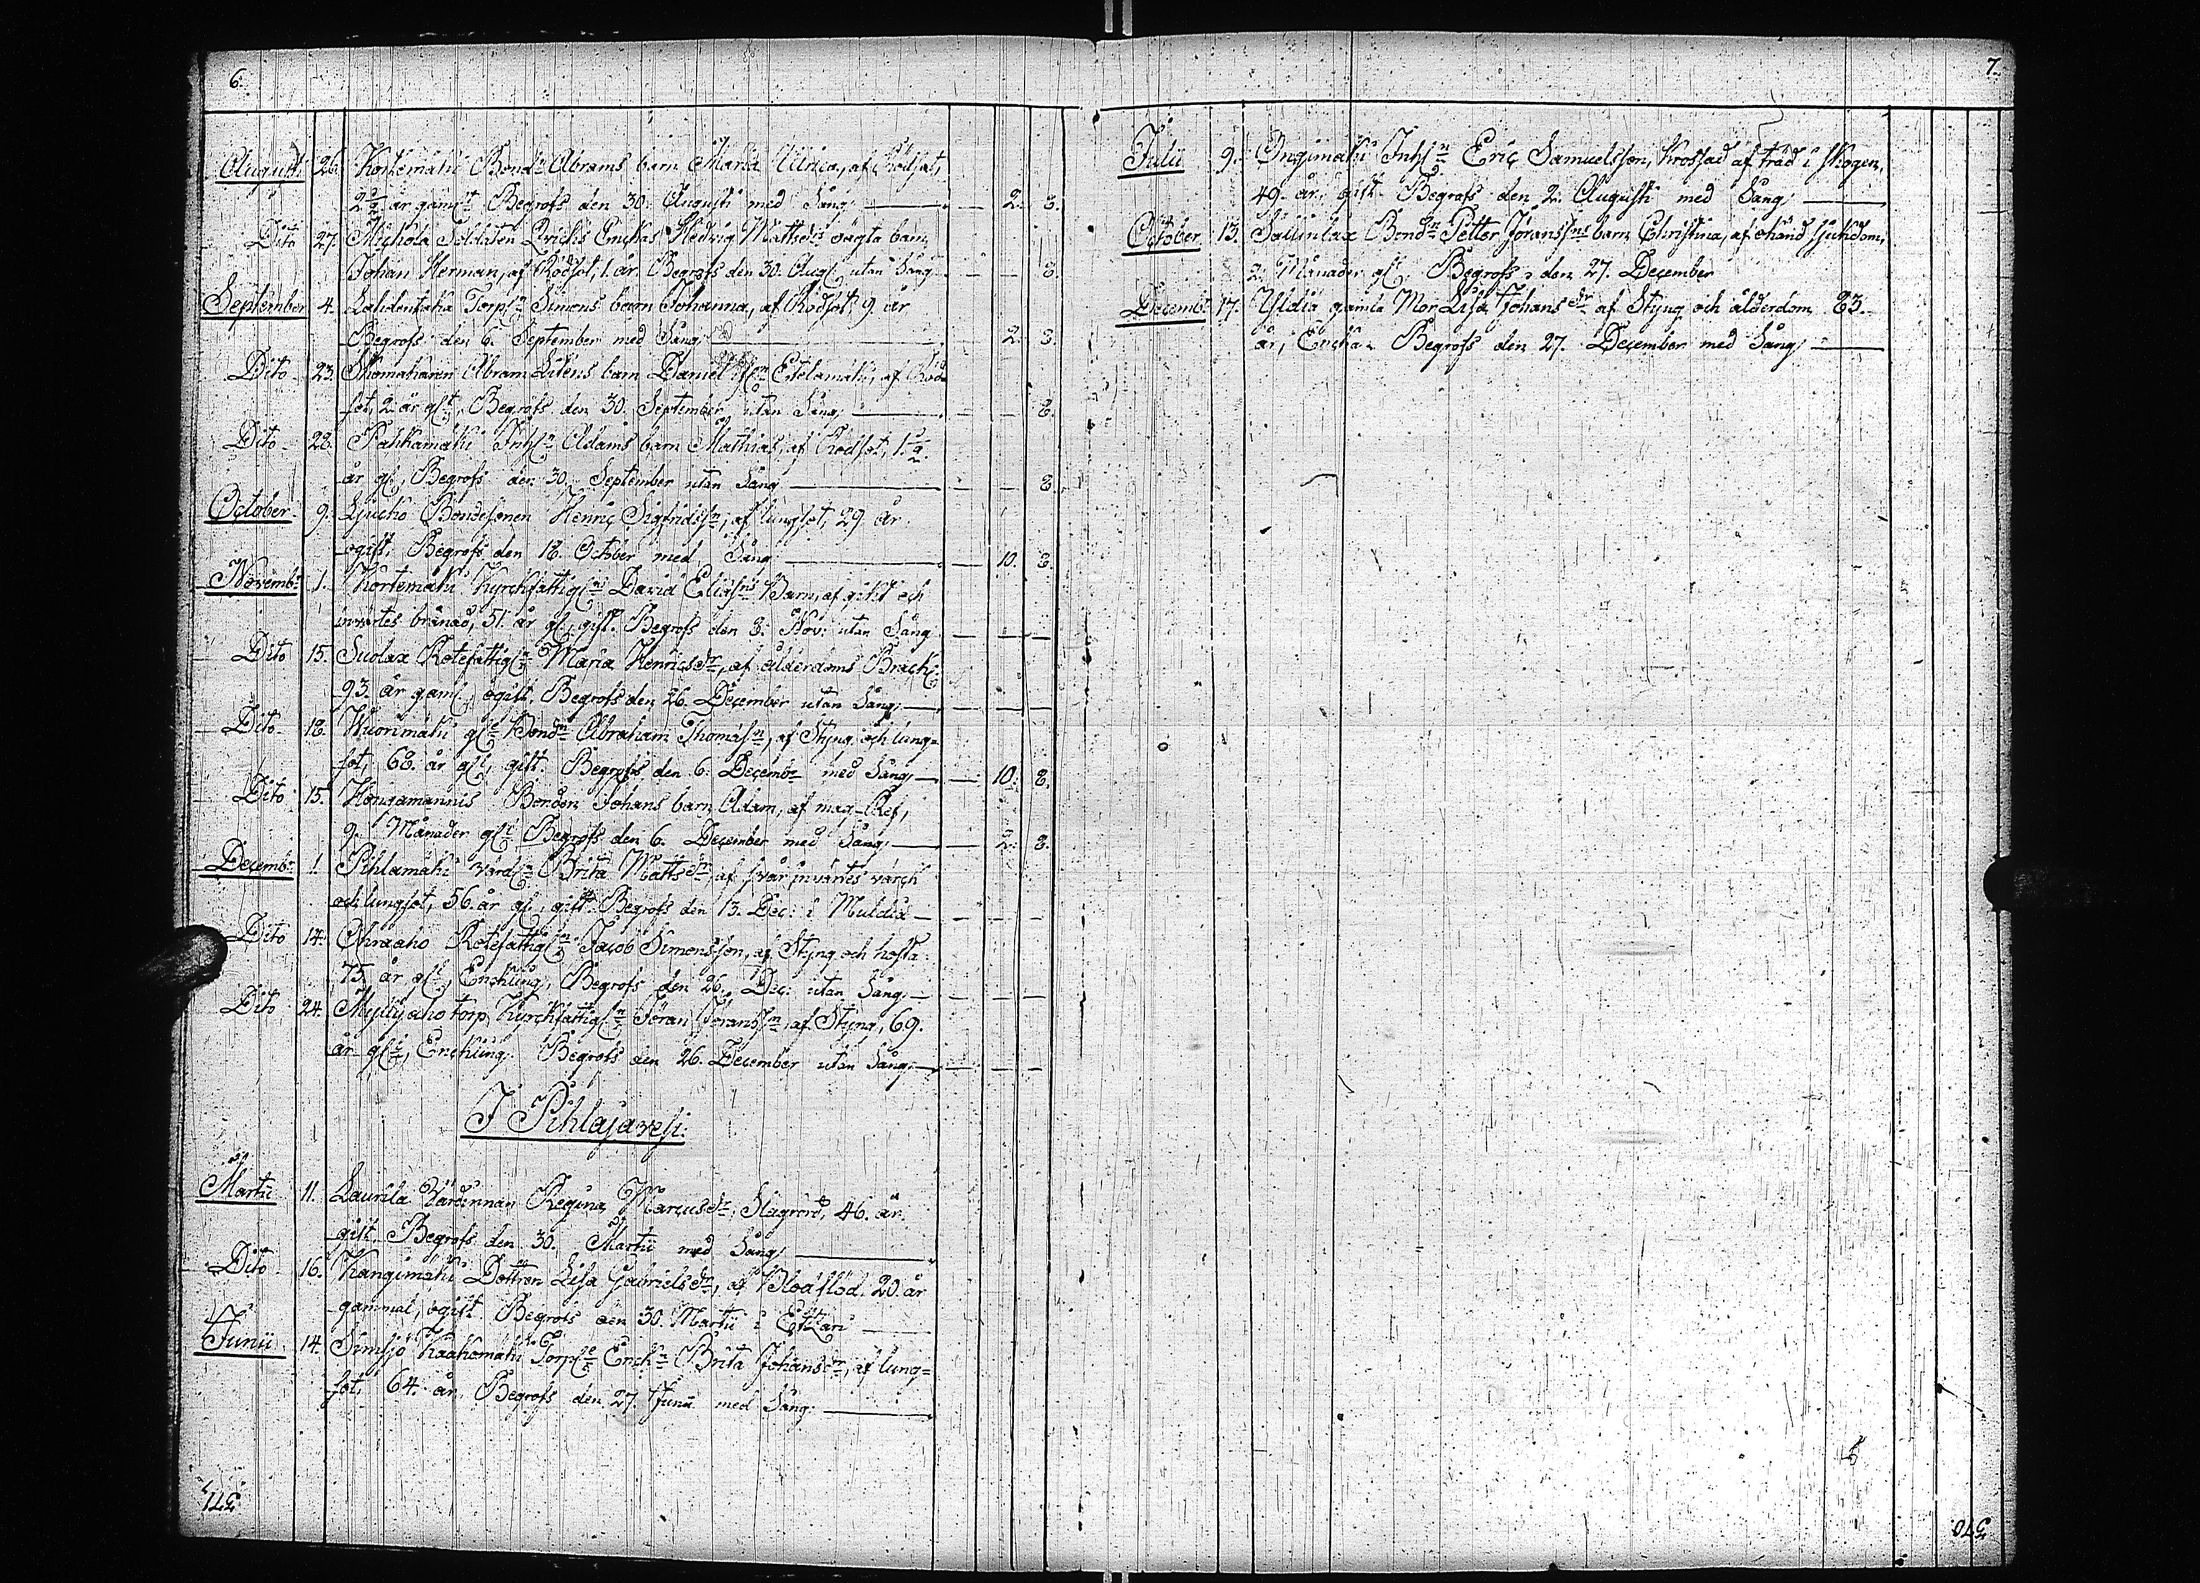 6.
Augusti 26. Kortemäki Bond: Abrams barn Maria Ulrica, af Rödsot,
2 1/2 år gam:t Begrofs den 30. Augusti med Sång — 2. 8.
Dito 27. Mickola Soldaten Enckas Hedvig Mattsd:rs oägta barn,
Johan Herman, af Rödsot, 1. år. Begrofs den 30. Aug: utan Sång — 8.
September 4. Torp:n Simons barn Johanna, af Rödsot, 9. år
Begrofs den 6. September med Sång — 2. 8.
Dito 23. Skomakaren Abram barn Daniel af Röd=
sot, 2. år gl:t, Begrofs den 30. September utan Sång — 8.
Dito 28. Pahkamäki Inh:n Adams barn Mathias, af Rödsot, 1. 1/2
år gl:, Begrofs den 30. September utan Sång — 8.
October 9. Bondesonen Henric Sigfridss:n, af lungsot, 29. år
ogift, Begrofs den 18. October med Sång — 10. 8.
Novemb:r 1. Kortemäki Kyrckfattig: David Elias:ns Barn, af gikt och
invärtes brånad, 51. år gl:, gift. Begrofs den 8. Nov: utan Sång —
Dito 15. Suolax Rotefattig: Maria Henricsd:r, af ålderdoms Brack:
93. år gam:, ogift, Begrofs den 26. December utan Sång —
Dito 18. Wuorimäki gl:e Bond:n Abraham Thomas:n, af Styng och lung=
sot, 68. år gl:, gift. Begrofs den 6. Decemb:r med Sång — 10. 8.
Dito 15. Hongamannis Bonden Johans barn Adam, af mag-Ref,
9. Månader gl:t Begrofs den 6. December med Sång — 2. 8.
Decemb:r 1. Pihlamäki Värd:n Brita Mattsd:r, af svår invärtes värck
och lungsot, 56. år gl:, gift. Begrofs den 13. Dec: i Muldia —
Dito 14. Ohraaho Rotefattig: Jacob Simonsson, af Styng och hosta
75. år gl:, Enckling, Begrofs den 26. Dec: utan Sång —
Dito 24. Myllyaho torp Kyrckfattig: Jöran Jöranss:n, af Styng, 69.
år gl:, Enckling. Begrofs den 26. December utan Sång —
I Pihlajavesi:
Martii 11. Laurila Värdinnan Regina Marcusd:r, Slagrörd, 46. år.
gift Begrofs den 30. Martii med Sång —
Dito 16. Kangimäki Dottren Lisa Gabrielsd:r, af Blodflöd. 20. år
gammal, ogift. Begrofs den 30. Martii i Etzäri —
Junii 14. Simsjö Kaakomäki Torp: Enck:n Brita Johansd:r, af lung=
sot, 64. år. Begrofs den 27. Junii med Sång: —
371
7.
Julii 9. Ongimäki Inh:n Eric Samuelsson, krossad af träd i skogen,
49. år, gift. Begrofs den 2. Augusti med Sång —
October 13. Bond:n Petter Jöranss:ns barn Christina, af okänd sjukdom,
2. Månader gl:. Begrofs den 27. December
Decemb:r 17. Yldiä gamla Mor Lisa Johansd:r af Styng och ålderdom 83.
år, Encka. Begrofs den 27. December med Sång —
370